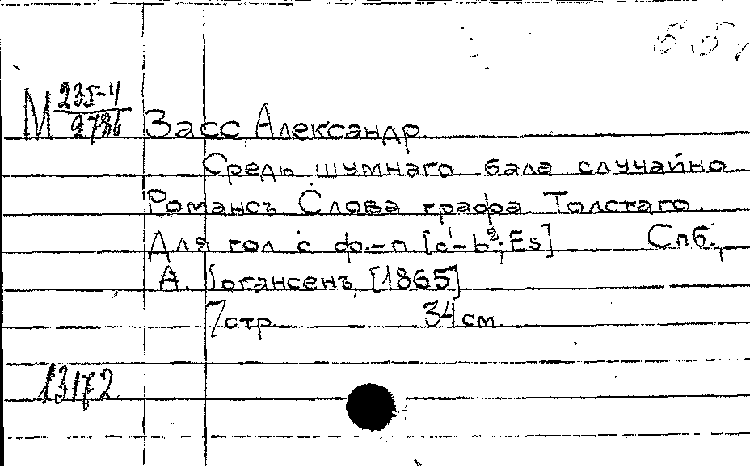 М 235-4/2786 Засс Александр.
Средь шумнаго бала случайно
Романсъ Слова графа Толстаго.
Для гол с ф.-п [c¹-b²; Es] Спб.,
А. Іогансенъ, [1865]
7 стр. 34 см.
13172